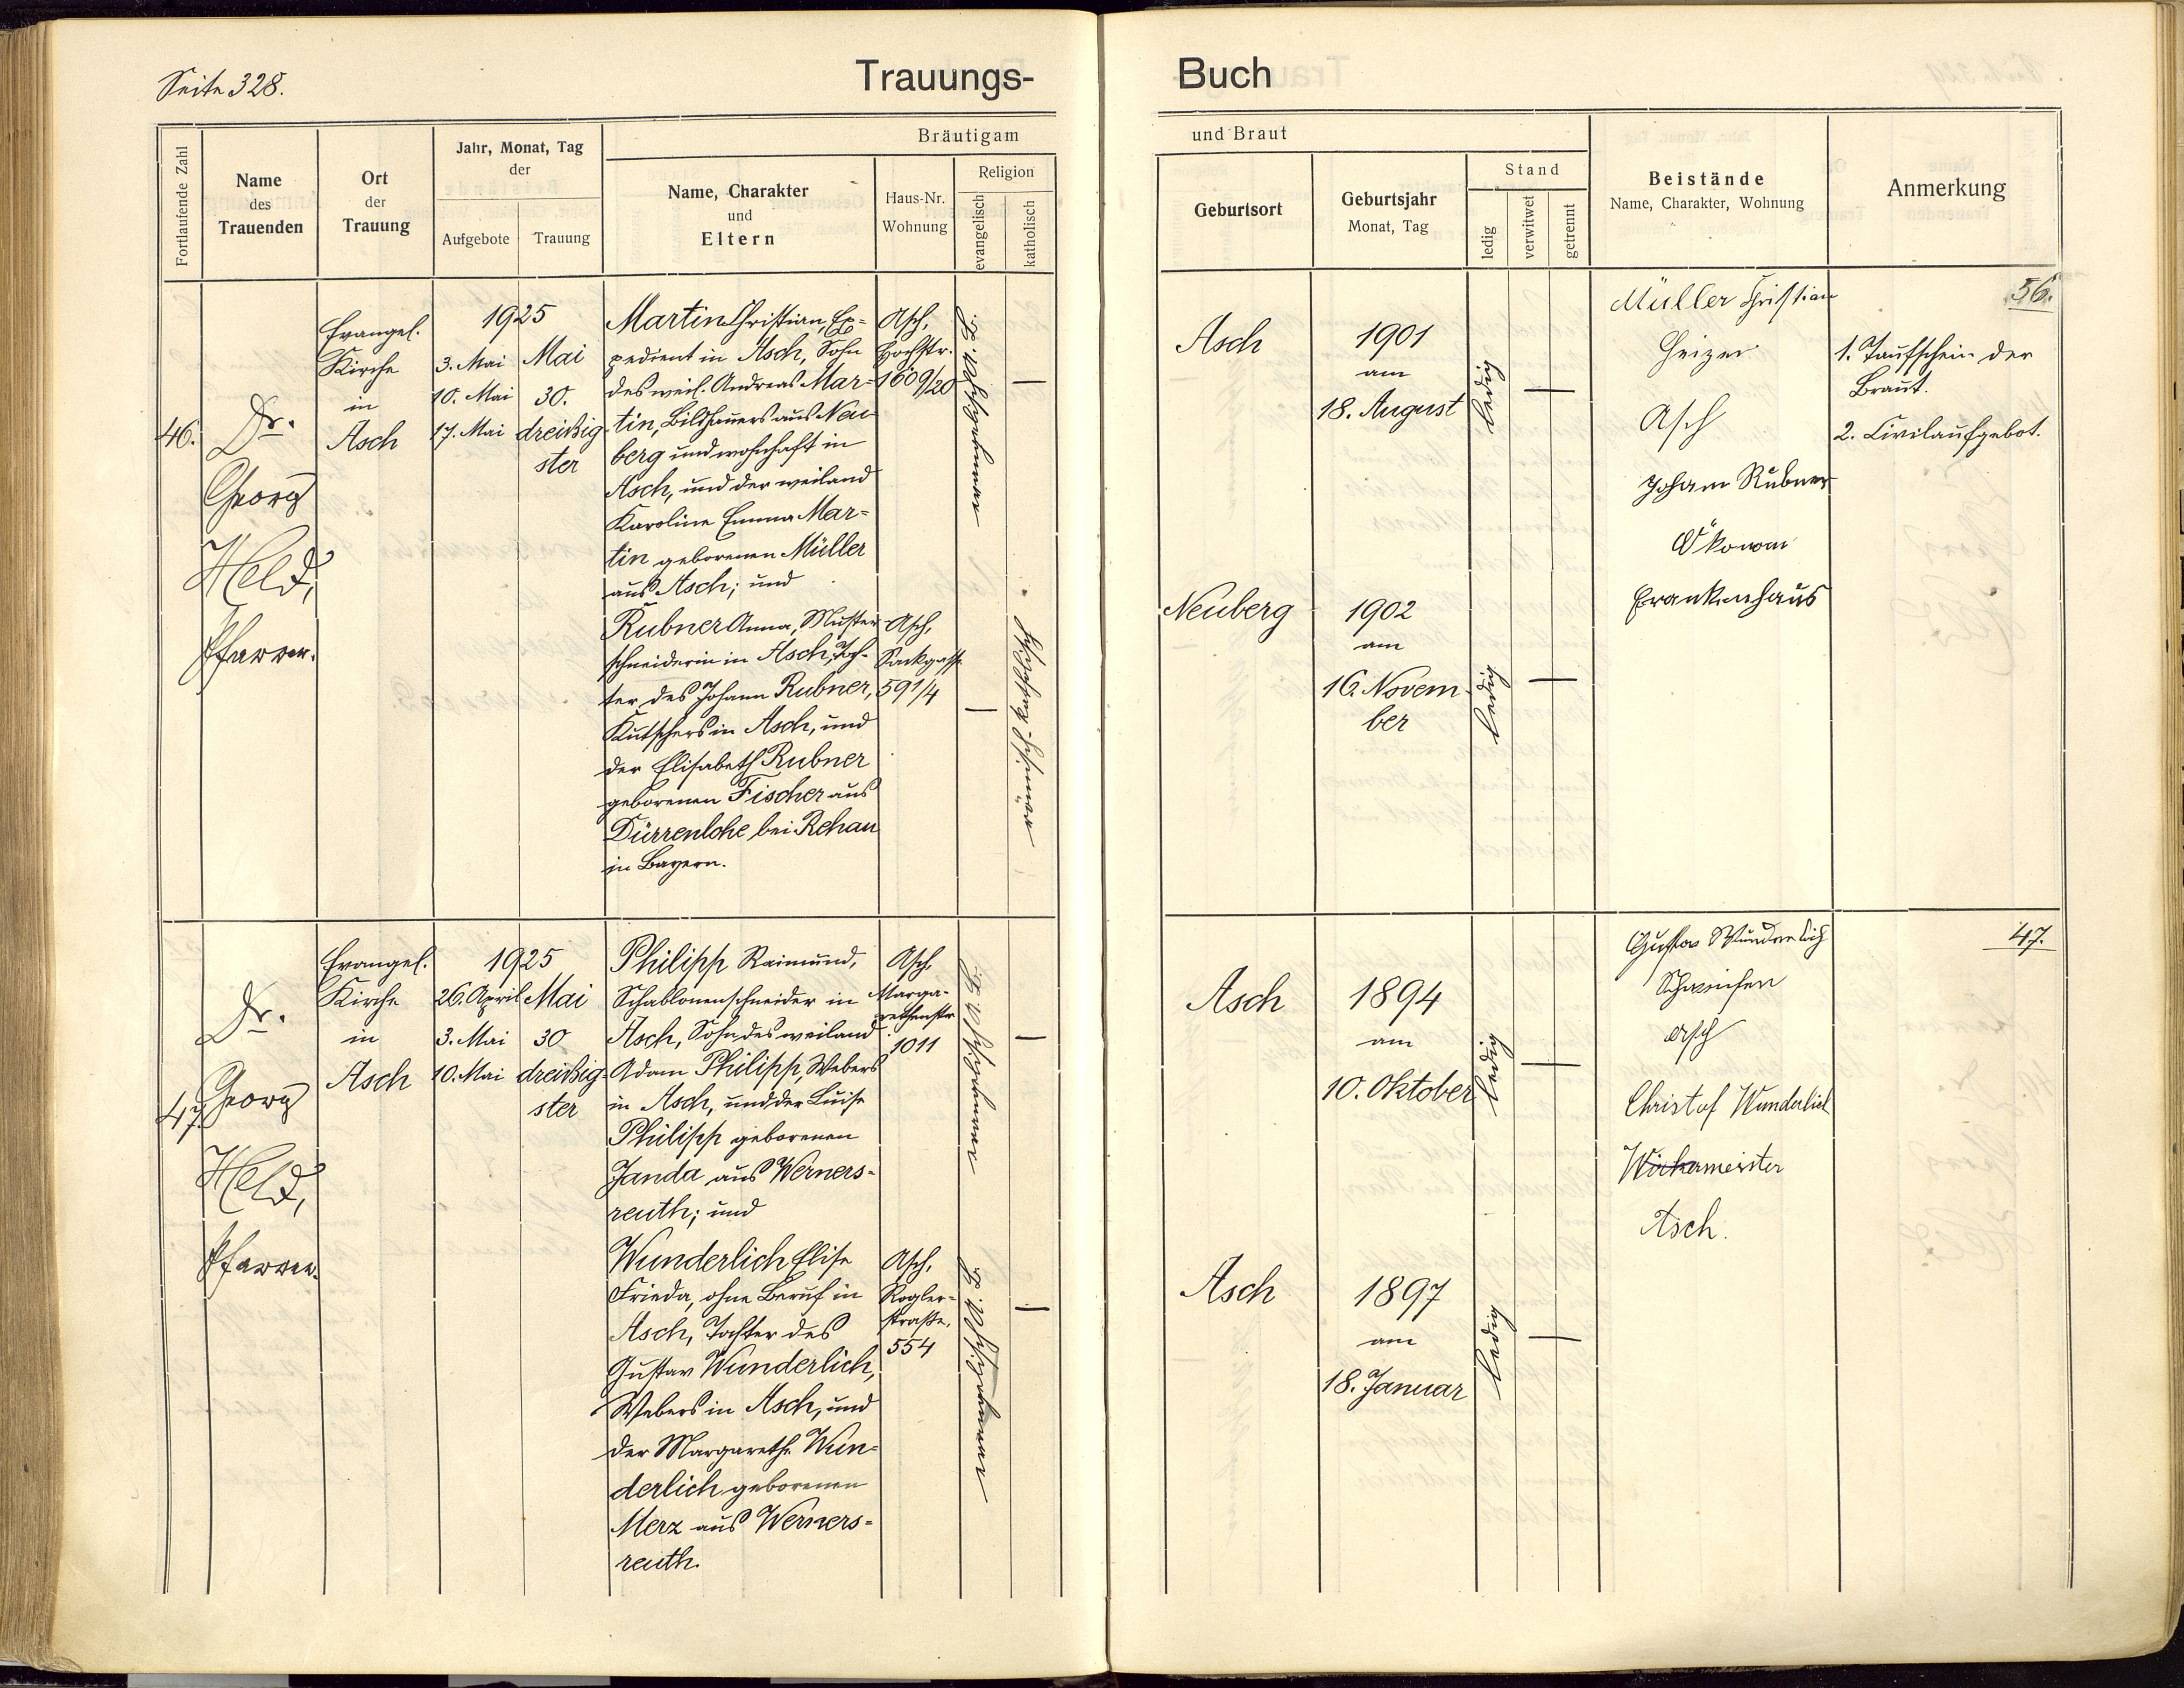 Seite 328.
Trauungs-
Buch
Fortlaufende Zahl
Name
des
Trauenden
Ort
der
Trauung
Jahr, Monat, Tag
der
Aufgebote
Trauung
Bräutigam
Name, Charakter
und
Eltern
Haus-Nr.
Wohnung
Religion
evangelisch
katholisch
und Braut
Geburtsort
Geburtsjahr
Monat, Tag
Stand
ledig
verwitwet
getrennt
Beistände
Name, Charakter, Wohnung
Anmerkung
46.
Dr.
Georg
Held,
Pfarrer.
Evangel.
Kirche
in
Asch
1925
3. Mai
10. Mai
17. Mai
Mai
30.
dreißig-
ster
Martin Christian, Ex-
pedient in Asch, Sohn
des weil. Andreas Mar-
tin, Bildhauers aus Neu-
berg und wohnhaft in
Asch, und der weiland
Karoline Emma Mar-
tin geborenen Müller
aus Asch; und
Asch,
Hochstr.
1609/20
evangelisch A. B.
—
Rubner Anna, Muster-
schneiderin in Asch, Toch-
ter des Johann Rubner,
Kutschers in Asch, und
der Elisabeth Rubner
geborenen Fischer aus
Dürrenlohe bei Rehau
in Bayern.
Asch,
Sackgasse
591/4
—
römisch-katholisch
Asch
1901
am
18. August
ledig
—
Neuberg
1902
am
16. Novem-
ber
ledig
—
Müller Christian
Heizer
Asch
Johann Rubner
Ökonom
Krankenhaus
56.
1. Taufschein der
Braut.
2. Civilaufgebot.
47.
Dr.
Georg
Held,
Pfarrer.
Evangel.
Kirche
in
Asch
1925
26. April
3. Mai
10. Mai
Mai
30
dreißig-
ster
Philipp Raimund,
Schablonenschneider in
Asch, Sohn des weiland
Adam Philipp, Webers
in Asch, und der Luise
Philipp geborenen
Janda aus Werners-
reuth; und
Asch,
Marga-
rethenstr.
1011
evangelisch A. B.
—
Wunderlich Elise
Frieda, ohne Beruf in
Asch, Tochter des
Gustav Wunderlich,
Webers in Asch, und
der Margarethe Wun-
derlich geborenen
Merz aus Werners-
reuth.
Asch,
Rogler-
straße,
554
evangelisch A. B.
—
Asch
1894
am
10. Oktober
ledig
—
Asch
1897
am
18. Januar
ledig
—
Gustav Wunderlich
Asch
Christof Wunderlich
Wirkermeister
Asch.
47.